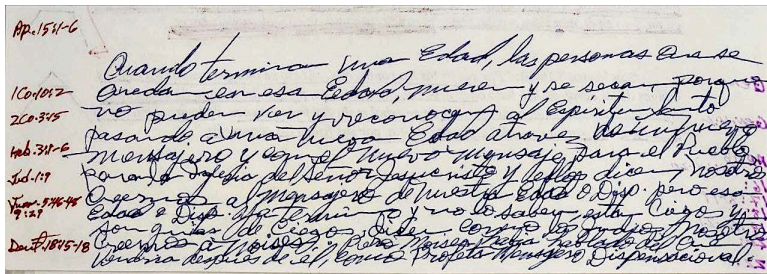 Ap. 15:1-6
1Co. 10:2
2Co. 3:15
Heb. 3:1-6
Jud. 1:9
Juan. 5:46-48
9:29
Deut. 18:15-18
Cuando termina una Edad, las personas que se
quedan en esa Edad, mueren y se secan, porque
no pueden ver y reconocer al Espíritu Santo
pasando a una nueva Edad atraves de un nuevo
mensajero y con el nuevo mensaje para el Pueblo
para la Iglesia del Señor Jesucristo y ellos dicen, nosotros
creemos al mensajero de nuestra Edad o Disp. pero esa
Edad o Disp. ya termino y no lo saben, estan ciegos y
son guias de ciegos, dicen como los judios, nosotros
creemos a Moises, pero Moises habia hablado del que
vendria despues de el, como Profeta Mensajero Dispensacional.